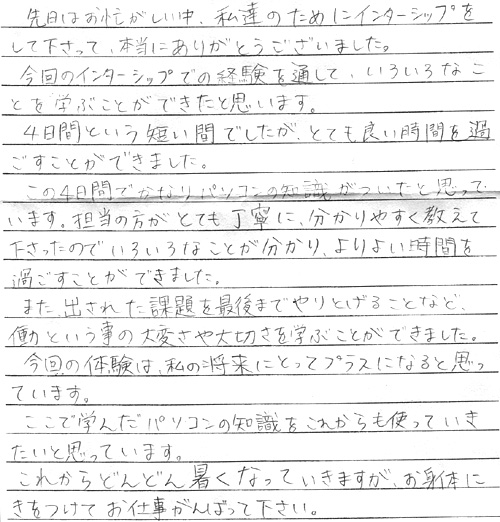 先日はお忙がしい中、私達のためにインターシップを
して下さって、本当にありがとうございました。
今回のインターシップでの経験を通して、いろいろなこ
とを学ぶことができたと思います。
4日間という短い間でしたが、とても良い時間を過
ごすことができました。
この4日間でかなりパソコンの知識がついたと思って
います。担当の方がとても丁寧に、分かりやすく教えて
下さったのでいろいろなことが分かり、よりよい時間を
過ごすことができました。
また、出された課題を最後までやりとげることなど、
働という事の大変さや大切さを学ぶことができました。
今回の体験は、私の将来にとってプラスになると思っ
ています。
ここで学んだパソコンの知識をこれからも使っていき
たいと思っています。
これからどんどん暑くなっていきますが、お身体に
きをつけてお仕事がんばって下さい。